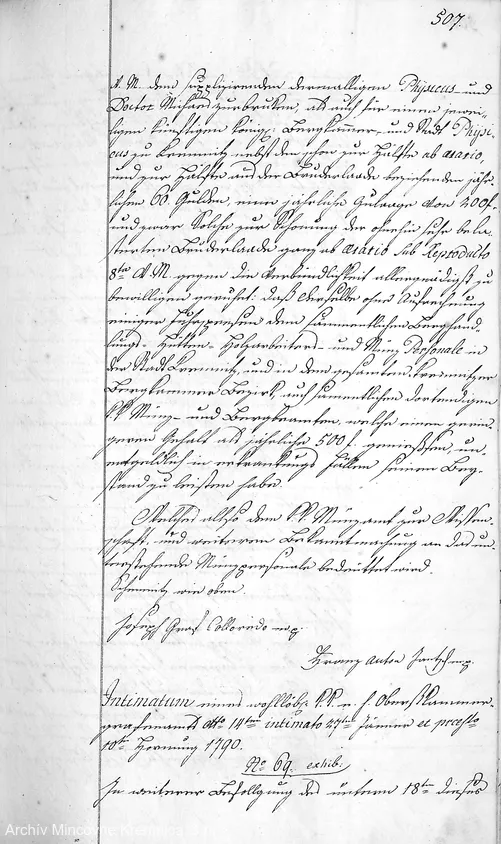 507.
A. M. dem supplizirenden dermalligen Physicus und
Doctor Michael zurbrüken, als auch für einen jewei-
ligen künftigen königl: Bergkam̄er- und Stadt Physi-
cus zu Kremnitz nebst den schon zur Hälfte ab aerario,
und zur Hälfte aus der Bruderlaade beziehenden jähr-
lichen 60. Gulden, eine jährliche Zulaage von 200f.
und zwar Solche zur Schonung der ohnehin sehr bela-
steten Bruderlaade ganz ab aerario sub Reproducto
8ten A. M. gegen die Verbindlichkeit allergnädigst zu
bewilligen geruhet: daß derselbe ohne Aufrechnung
einiger dem sämmentlichen Berghand-
lungs- Hütten- Holzarbeiters- und Münz Personale in
der Stadt Kremnitz, und in dem gesamten Kremnitzer
Bergkammer Bezirk, auch sämmentlichen dortendigen
k.k. Münz- und Bergbeamten, welche einen gerin
geren Gehalt als jährliche 500f. genießen, un-
entgeldlich in erkrankungs Fällen seinen Bey-
stand zu leisten habe.
Welches allso dem k.k. Münzamt zur Wissen-
schaft- und weiteren Bekanntmachung an das un-
terstehende Münzpersonale bedeuttet wird.
Schemnitz wie oben.
Joseph Graf Colloredo mp.
Franz Anton mp.
Intimatum eines wohllöbl: k.k. u. f. Oberstkammer-
grafenamts dtto 14ten intimato 27ten Jänner et percepto
10ten Hornung 1790.
No 69. exhib:
In weiterer Befollgung des unterm 18ten dieses
Archív Mincovne Kremnica